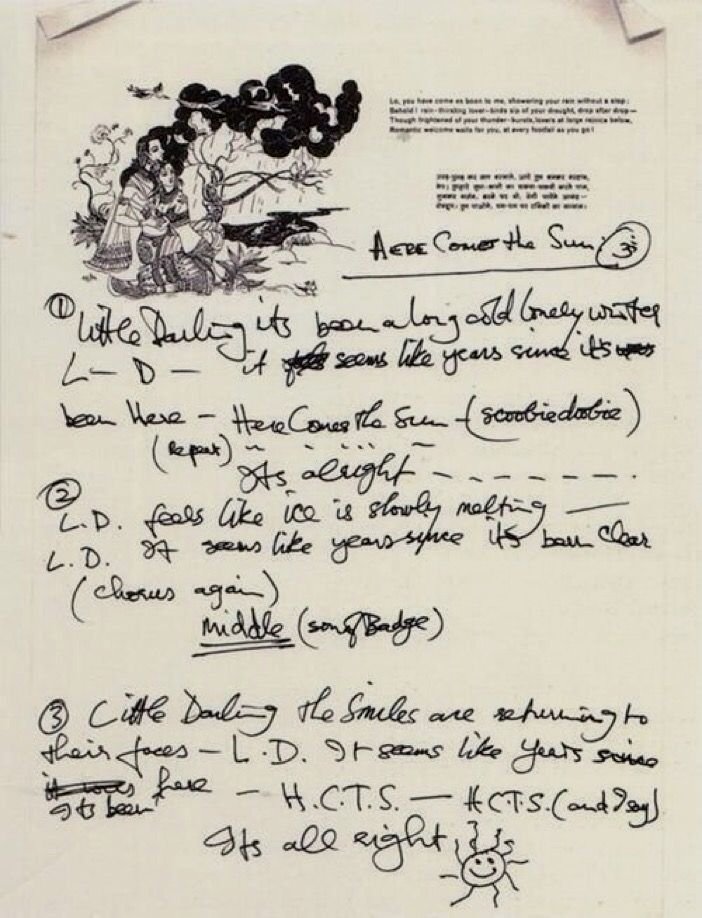 Lo, you have come as boon to me, showering your rain without a stop:
Behold! rain-thirsting lover-birds sip of your draught, drop after drop—
Though frightened of your thunder-bursts, lovers at large rejoice below,
Romantic welcome waits for you, at every footfall as you go!
HERE COMES the Sun. ॐ
① Little Darling its been a long cold lonely winter
L — D — it seems like years since it's
been Here — Here Comes The Sun — (scoobie doobie)
(Repeat)
Its alright - - - - - - - .
②
L.D. feels like ice is slowly melting —
L.D. It seems like years since it's been Clear
(Chorus again)
Middle (song Badge)
③ Little Darling the Smiles are returning to
their faces — L.D. It seems like years since
it was here — H.C.T.S. — H.C.T.S. (and I say)
Its been
Its all right